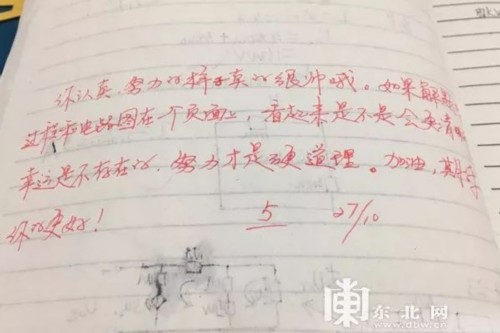 你认真、努力的样子真的很帅哦。如果解题
过程和电路图在一个页面上，看起来是不是会更清
幸运是不存在的，努力才是硬道理。加油，期待
你的更好！
5 27/10
东北网
www.dbw.cn